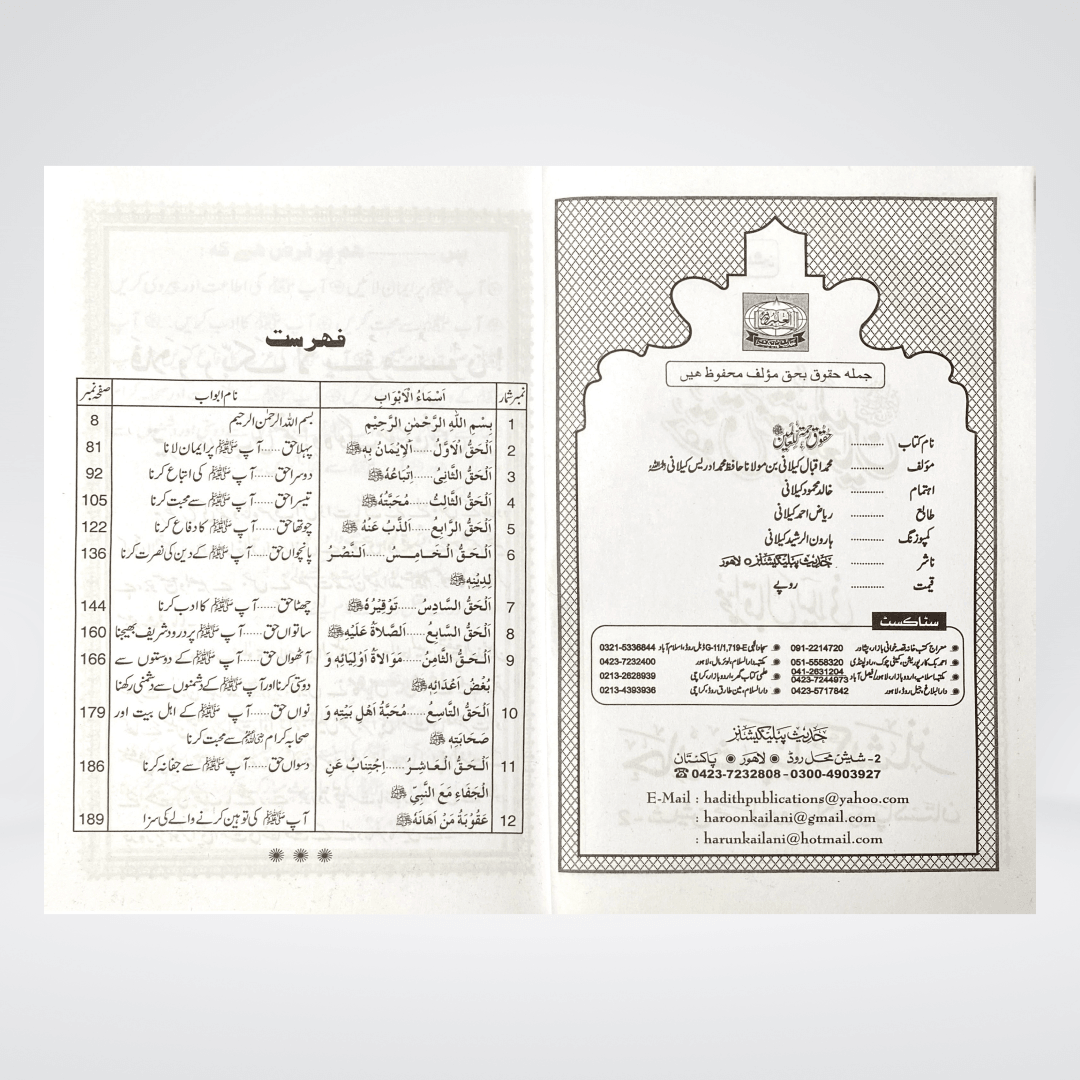 جملہ حقوق بحق مؤلف محفوظ ھیں
نام کتاب ............ حقوق رحمۃ للعالمین ﷺ
مؤلف ............ محمد اقبال کیلانی بن مولانا حافظ محمد ادریس کیلانی رحمہ اللہ
اہتمام ............ خالد محمود کیلانی
طابع ............ ریاض احمد کیلانی
کمپوزنگ ............ ہارون الرشید کیلانی
ناشر ............ حدیث پبلیکیشنز، لاہور
قیمت ............ روپے
سٹاکسٹ
معراج کتب خانہ قصہ خوانی بازار، پشاور 091-2214720
احمد بک کارپوریشن، کمیٹی چوک، راولپنڈی 051-5558320
مکتبہ اسلامیہ، اردو بازار، لاہور/فیصل آباد 041-2631204 0423-7244973
دارالبلاغ، جیل روڈ، لاہور 0423-5717842
E-719,G-11/1 ڈبل روڈ، اسلام آباد 0321-5336844
مکتبہ دارالسلام، لوئر مال، لاہور 0423-7232400
علمی کتاب گھر، اردو بازار، کراچی 0213-2628939
دارالسلام، مین طارق روڈ، کراچی 0213-4393936
حدیث پبلیکیشنز
2- شیش محل روڈ ◉ لاھور ◉ پاکستان
☎ 0423-7232808 - 0300-4903927
E-Mail : hadithpublications@yahoo.com
: haroonkailani@gmail.com
: harunkailani@hotmail.com
فہرست
نمبر شمار اَسْمَاءُ الْاَبْوَاب نام ابواب صفحہ نمبر
1 بِسْمِ اللّٰهِ الرَّحْمٰنِ الرَّحِيْمِ بسم اللہ الرحمٰن الرحیم 8
2 اَلْحَقُّ الْاَوَّلُ......اَلْاِيْمَانُ بِهٖ ﷺ پہلا حق......آپ ﷺ پر ایمان لانا 81
3 اَلْحَقُّ الثَّانِیُ......اِتِّبَاعُهٗ ﷺ دوسرا حق......آپ ﷺ کی اتباع کرنا 92
4 اَلْحَقُّ الثَّالِثُ......مُحَبَّتُهٗ ﷺ تیسرا حق......آپ ﷺ سے محبت کرنا 105
5 اَلْحَقُّ الرَّابِعُ......اَلذَّبُّ عَنْهُ ﷺ چوتھا حق......آپ ﷺ کا دفاع کرنا 122
6 اَلْحَقُّ الْخَامِسُ......اَلنَّصْرُ پانچواں حق......آپ ﷺ کے دین کی نصرت کرنا 136
لِدِيْنِهٖ ﷺ
7 اَلْحَقُّ السَّادِسُ......تَوْقِيْرُهٗ ﷺ چھٹا حق......آپ ﷺ کا ادب کرنا 144
8 اَلْحَقُّ السَّابِعُ......اَلصَّلَاةُ عَلَيْهِ ﷺ ساتواں حق......آپ ﷺ پر درود شریف بھیجنا 160
9 اَلْحَقُّ الثَّامِنُ......مَوَالَاةُ اَوْلِيَائِهٖ وَ آٹھواں حق......آپ ﷺ کے دوستوں سے 166
بُغْضُ اَعْدَائِهٖ ﷺ دوستی کرنا اور آپ ﷺ کے دشمنوں سے دشمنی رکھنا
10 اَلْحَقُّ التَّاسِعُ......مُحَبَّةُ اَهْلِ بَيْتِهٖ وَ نواں حق......آپ ﷺ کے اہل بیت اور 179
صَحَابَتِهٖ ﷺ صحابہ کرام رضی اللہ عنہم سے محبت کرنا
11 اَلْحَقُّ الْعَاشِرُ......اِجْتِنَابُ عَنِ دسواں حق......آپ ﷺ سے جفا نہ کرنا 186
الْجَفَاءِ مَعَ النَّبِیِّ ﷺ
12 عَقُوْبَةُ مَنْ اَهَانَهٗ ﷺ آپ ﷺ کی توہین کرنے والے کی سزا 189